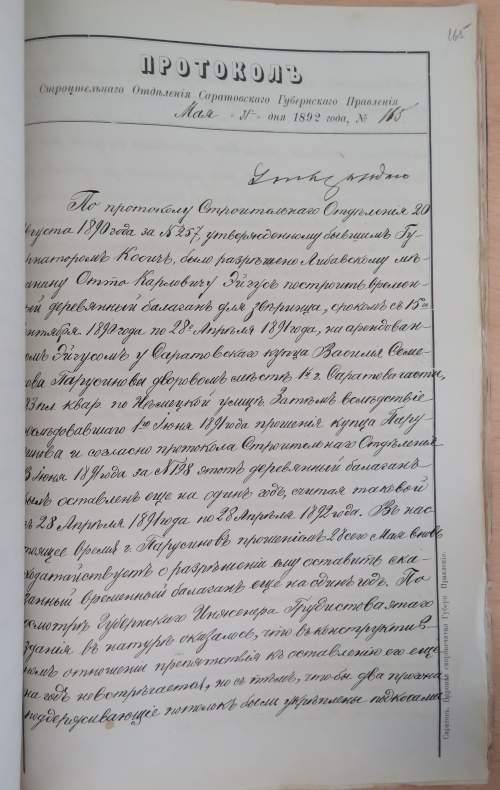 165
ПРОТОКОЛЪ
Строительнаго Отдѣленія Саратовскаго Губернскаго Правленія
Мая „31“ дня 1892 года, № 165
Утверждаю
По протоколу Строительнаго Отдѣленія 20
вгуста 1890 года за №257, утвержденному бывшимъ Гу-
рнаторомъ Косичъ, было разрѣшено Либавскому мѣ-
анину Отто Карловичу Эйгусъ построить времен-
ый деревянный балаганъ для звѣринца, срокомъ съ 15го
ентября 1890 года по 28е Апрѣля 1891 года, на арендован-
омъ Эйгусомъ у Саратовскаго купца Василія Семе-
ова Парусинова дворовомъ мѣстѣ 1й г. Саратова части,
83 пл квар по Нѣмецкой улицѣ. Затѣмъ вслѣдствіе
ослѣдовавшаго 1го Іюня 1891 года прошенія купца Пару-
инова и согласно протокола Строительнаго Отдѣленія
3 Іюня 1891 года за №198 этотъ деревянный балаганъ
былъ оставленъ еще на одинъ годъ, считая таковой
съ 28 Апрѣля 1891 года по 28 Апрѣля 1892 года. Въ нас-
тоящее время г. Парусиновъ прошеніемъ 28 сего Мая вновь
ходатайствуетъ о разрѣшеніи ему оставить ска-
занный временный балаганъ еще на одинъ годъ. По
осмотрѣ Губернскаго Инженера Грудистова этаго
зданія въ натурѣ оказалось, что въ конструктив-
номъ отношеніи препятствія къ оставленію его еще
на годъ не встрѣчается, но съ тѣмъ, чтобы два прогона
поддерживающіе потолокъ были укрѣплены подкосами
Саратовъ. Паровая скоропечатня Губерн. Правленія.